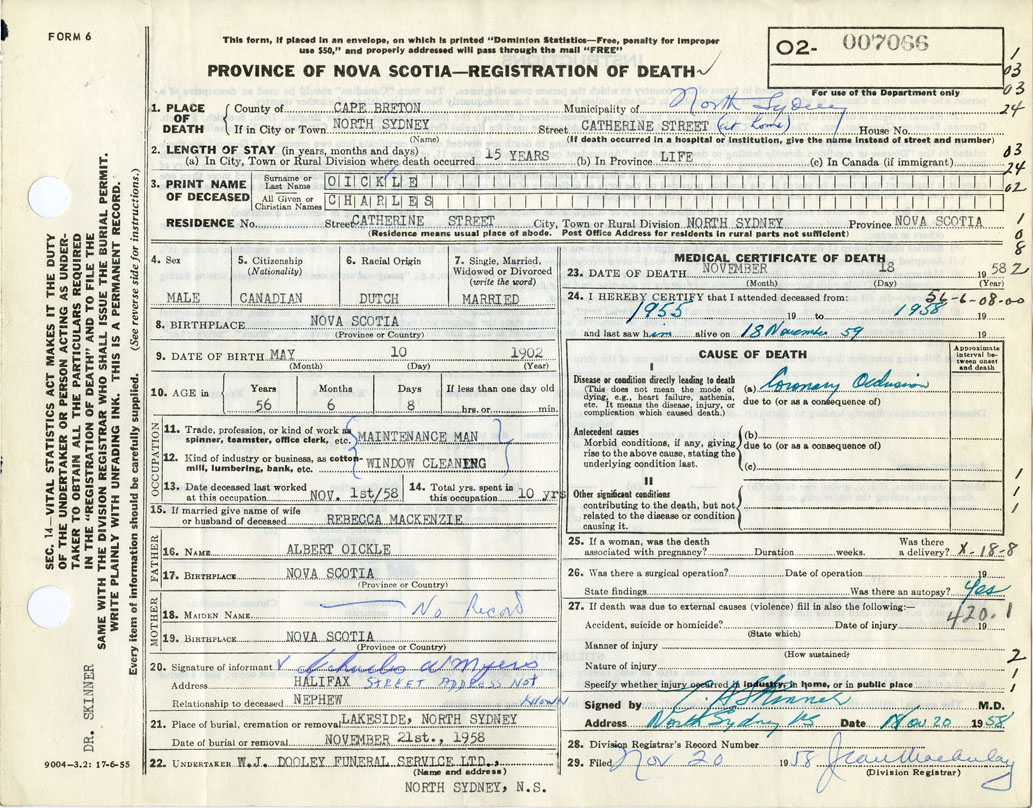 FORM 6
This form, if placed in an envelope, on which is printed "Dominion Statistics—Free, penalty for improper
use $50," and properly addressed will pass through the mail "FREE"
O2- 007066
PROVINCE OF NOVA SCOTIA—REGISTRATION OF DEATH
For use of the Department only
1
03
03
24
03
24
02
1
0
8
2
1. PLACE OF DEATH
County of CAPE BRETON
Municipality of North Sydney
If in City or Town NORTH SYDNEY (Name) Street CATHERINE STREET (at home) House No.
(If death occurred in a hospital or institution, give the name instead of street and number)
2. LENGTH OF STAY (in years, months and days)
(a) In City, Town or Rural Division where death occurred 15 YEARS (b) In Province LIFE (c) In Canada (if immigrant)
3. PRINT NAME OF DECEASED
Surname or Last Name OICKLE
All Given or Christian Names CHARLES
RESIDENCE No. Street CATHERINE STREET City, Town or Rural Division NORTH SYDNEY Province NOVA SCOTIA
(Residence means usual place of abode. Post Office Address for residents in rural parts not sufficient)
4. Sex
MALE
5. Citizenship (Nationality)
CANADIAN
6. Racial Origin
DUTCH
7. Single, Married, Widowed or Divorced (write the word)
MARRIED
8. BIRTHPLACE NOVA SCOTIA
(Province or Country)
9. DATE OF BIRTH MAY 10 1902
(Month) (Day) (Year)
10. AGE in Years Months Days If less than one day old
56 6 8 hrs. or min.
OCCUPATION
11. Trade, profession, or kind of work as spinner, teamster, office clerk, etc. MAINTENANCE MAN
12. Kind of industry or business, as cotton-mill, lumbering, bank, etc. WINDOW CLEANING
13. Date deceased last worked at this occupation NOV. 1st/58
14. Total yrs. spent in this occupation 10 yrs
15. If married give name of wife or husband of deceased REBECCA MACKENZIE
FATHER
16. NAME ALBERT OICKLE
17. BIRTHPLACE NOVA SCOTIA
(Province or Country)
MOTHER
18. MAIDEN NAME No Record
19. BIRTHPLACE NOVA SCOTIA
(Province or Country)
20. Signature of informant Charles W Myers
Address HALIFAX STREET ADDRESS NOT KNOWN
Relationship to deceased NEPHEW
21. Place of burial, cremation or removal LAKESIDE, NORTH SYDNEY
Date of burial or removal NOVEMBER 21st., 1958
22. UNDERTAKER W.J. DOOLEY FUNERAL SERVICE LTD.,
(Name and address)
NORTH SYDNEY, N.S.
MEDICAL CERTIFICATE OF DEATH
23. DATE OF DEATH NOVEMBER 18 1958
(Month) (Day) (Year)
24. I HEREBY CERTIFY that I attended deceased from: 56-6-08-00
1955 19 to 1958 19
and last saw him alive on 18 November 59 19
CAUSE OF DEATH
Approximate interval between onset and death
I
Disease or condition directly leading to death
(This does not mean the mode of dying, e.g., heart failure, asthenia, etc. It means the disease, injury, or complication which caused death.)
(a) Coronary Occlusion
due to (or as a consequence of)
Antecedent causes
Morbid conditions, if any, giving rise to the above cause, stating the underlying condition last.
(b)
due to (or as a consequence of)
(c)
II
Other significant conditions
contributing to the death, but not related to the disease or condition causing it.
1
1
1
25. If a woman, was the death associated with pregnancy? Duration weeks. Was there a delivery? X-18-8
26. Was there a surgical operation? Date of operation 19
State findings Was there an autopsy? Yes
27. If death was due to external causes (violence) fill in also the following:—
420.1
Accident, suicide or homicide? Date of injury 19
(State which)
Manner of injury
(How sustained)
Nature of injury
Specify whether injury occurred in industry, in home, or in public place
1
2
1
1
Signed by Skinner M.D.
Address North Sydney NS Date Nov 20 1958
28. Division Registrar's Record Number
29. Filed Nov 20 1958 Jean Macaulay
(Division Registrar)
SEC. 14—VITAL STATISTICS ACT MAKES IT THE DUTY
OF THE UNDERTAKER OR PERSON ACTING AS UNDER-
TAKER TO OBTAIN ALL THE PARTICULARS REQUIRED
IN THE "REGISTRATION OF DEATH" AND TO FILE THE
SAME WITH THE DIVISION REGISTRAR WHO SHALL ISSUE THE BURIAL PERMIT.
WRITE PLAINLY WITH UNFADING INK. THIS IS A PERMANENT RECORD.
Every item of information should be carefully supplied. (See reverse side for instructions.)
DR. SKINNER
9004-3.2: 17-6-55